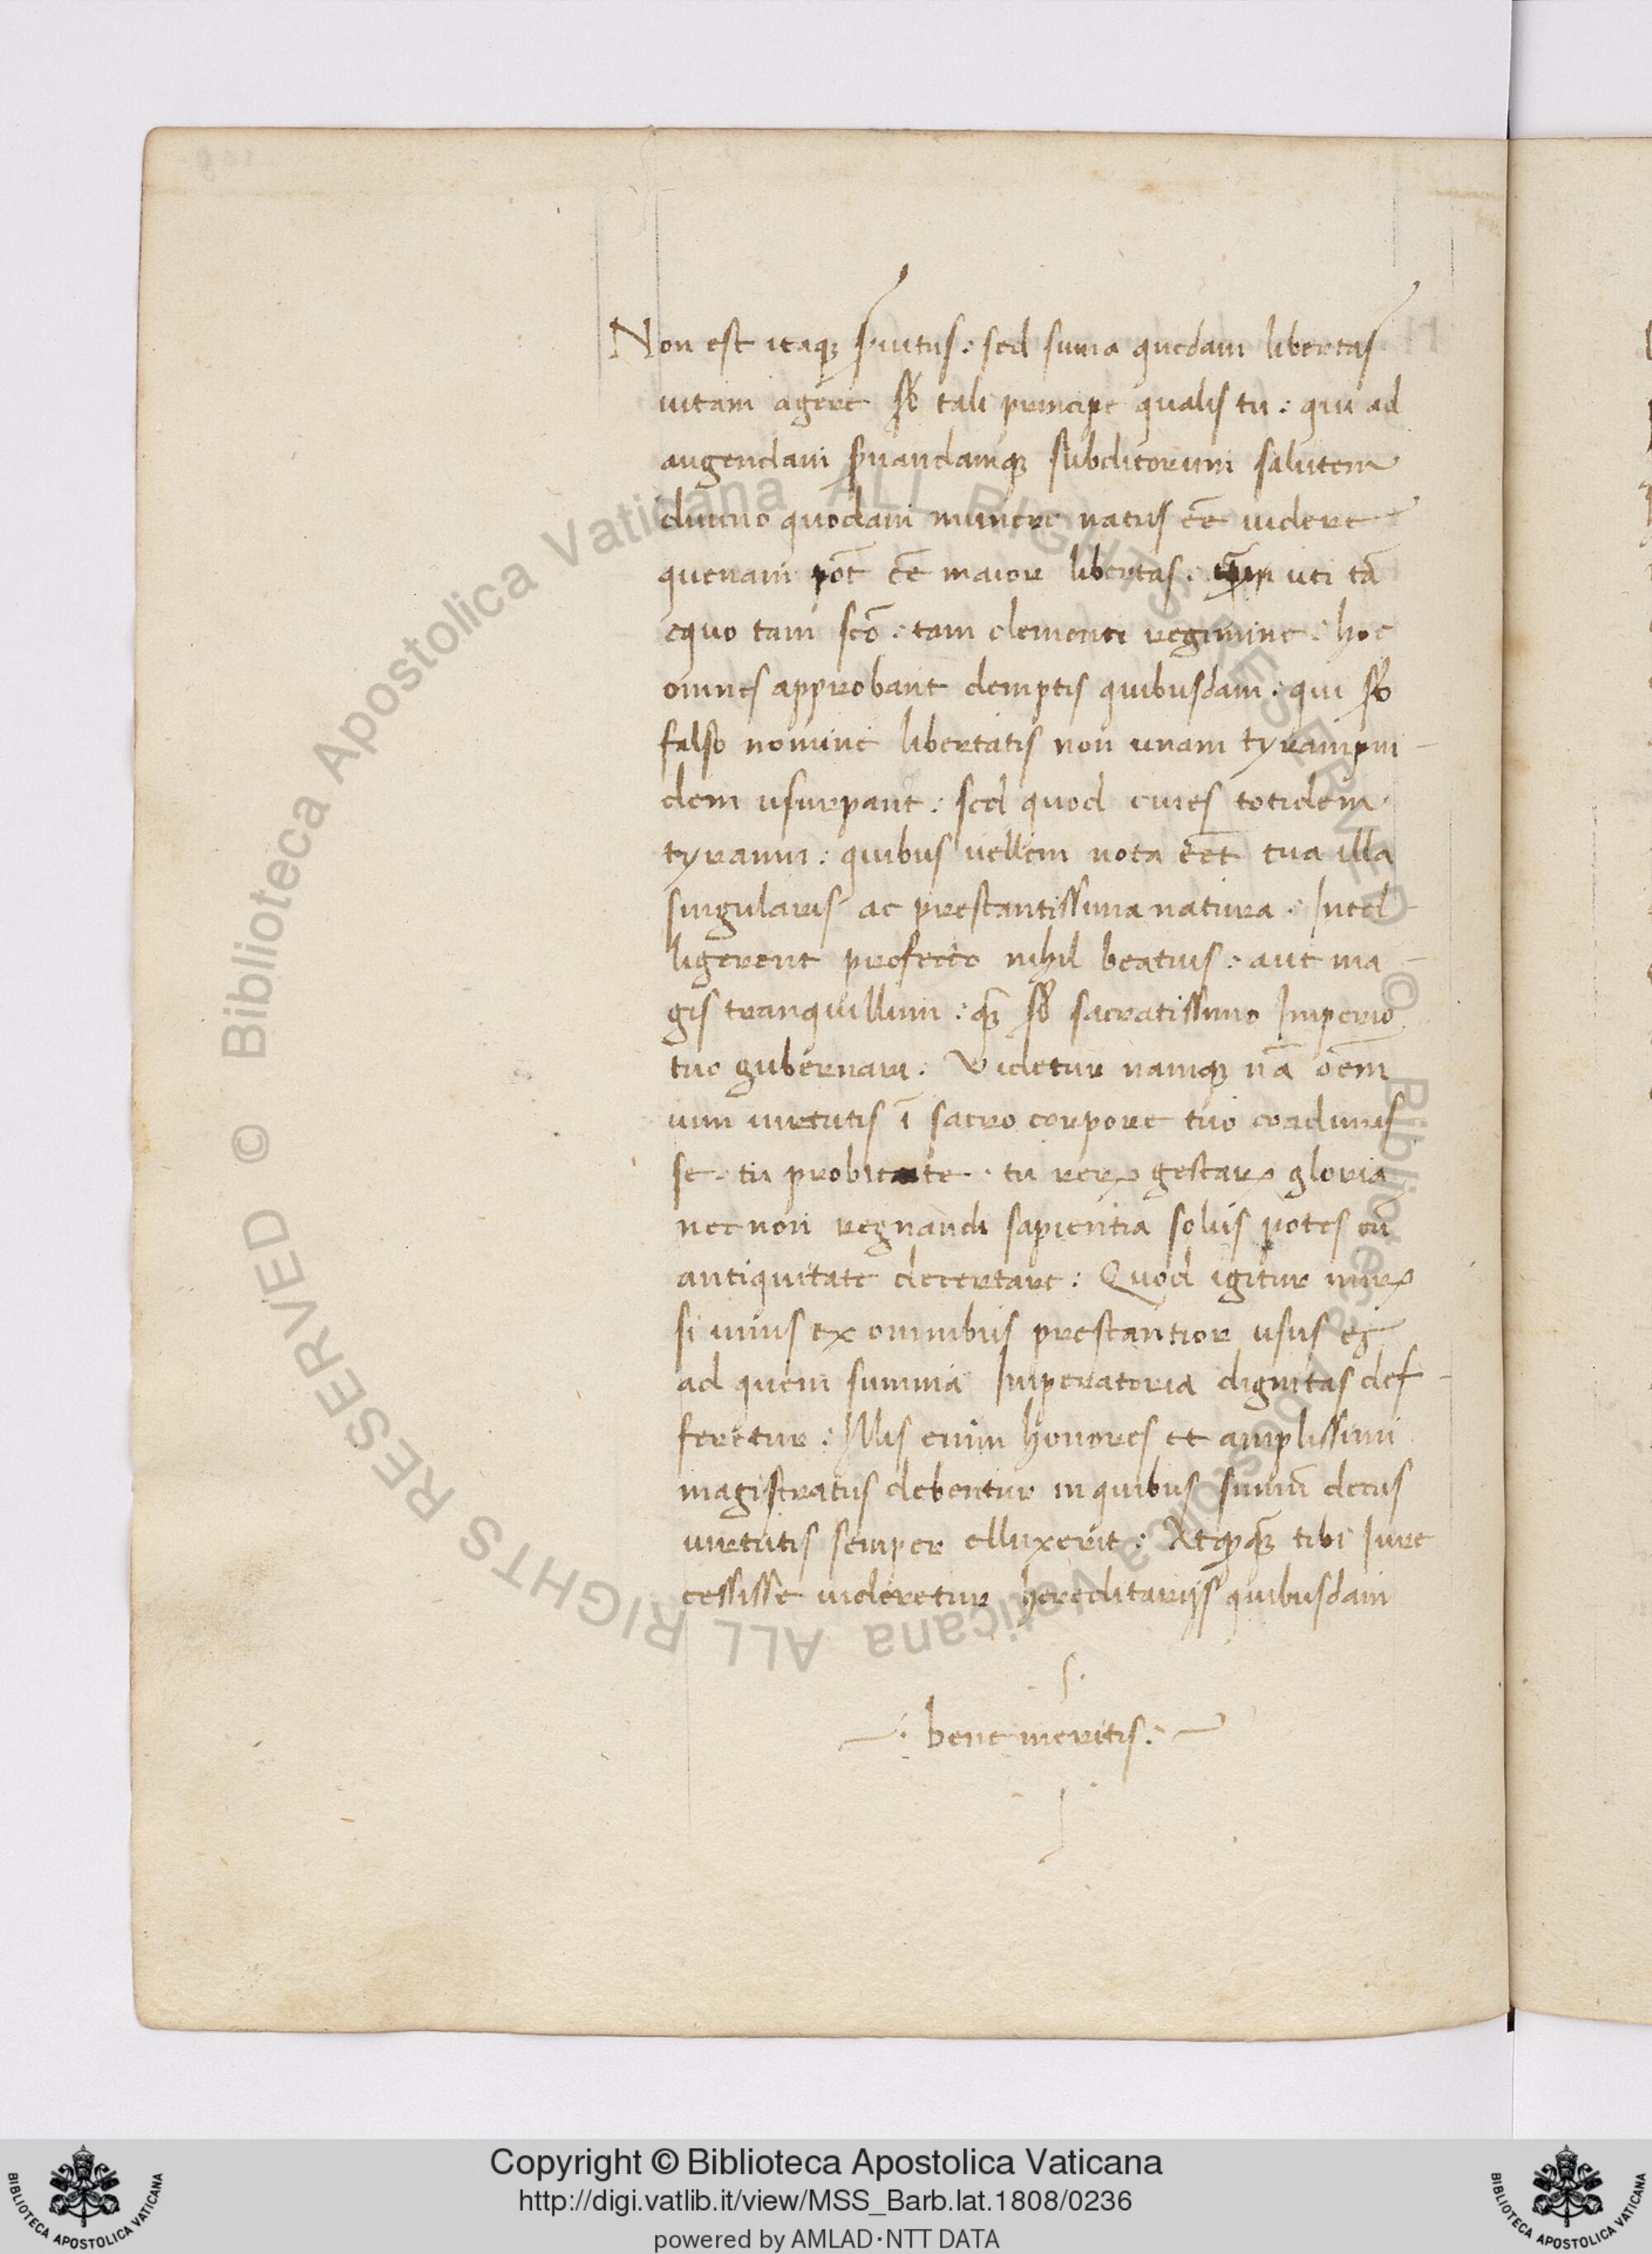 Non est itaq; ſ̱uitus : sed suma quedam libertas
uitam agere sb̄ tali principe qualis tu : qui ad
augendam ſ̱uandamq; subditorum salutem
diuino quodam munere natus eē uidere
quenam pōt eē maior libertas . quam uti tā
equo tam scō : tam clementi regimine : hoc
omnes approbant demptis quibusdam : qui sb̄
falso nomine libertatis non unam tyrampni-
dem usurpant : sed quod ciues totidem
tyranni : quibus uellem nota eēt tua illa
singularis ac prestantissima natura : Intel-
ligerent profecto nihil beatius : aut ma-
gis tranquillum : q̄ sb̄ sacratissimo Imperio
tuo gubernari . Videtur namq; nā oēm
uim uirtutis ī sacro corpore tuo coadunas
se . tu probitate . tu reꝝ gestaꝝ gloria
nec non regnandi sapientia solus potes cū
antiquitate decertare : Quod igitur miꝝ
si unus ex omnibus prestantior usus es
ad quem summa Imperatoria dignitas def-
feretur : Illis enim honores et amplissimi
magistratus debentur in quibus sumū decus
uirtutis semper elluxerit : Atq; q̄ tibi Iure
cessisse uideretur hereditarijs quibusdam
bene meritis :
Copyright © Biblioteca Apostolica Vaticana
http://digi.vatlib.it/view/MSS_Barb.lat.1808/0236
powered by AMLAD·NTT DATA
BIBLIOTECA APOSTOLICA VATICANA
BIBLIOTECA APOSTOLICA VATICANA
© Biblioteca Apostolica Vaticana ALL RIGHTS RESERVED © Biblioteca Apostolica Vaticana ALL RIGHTS RESERVED